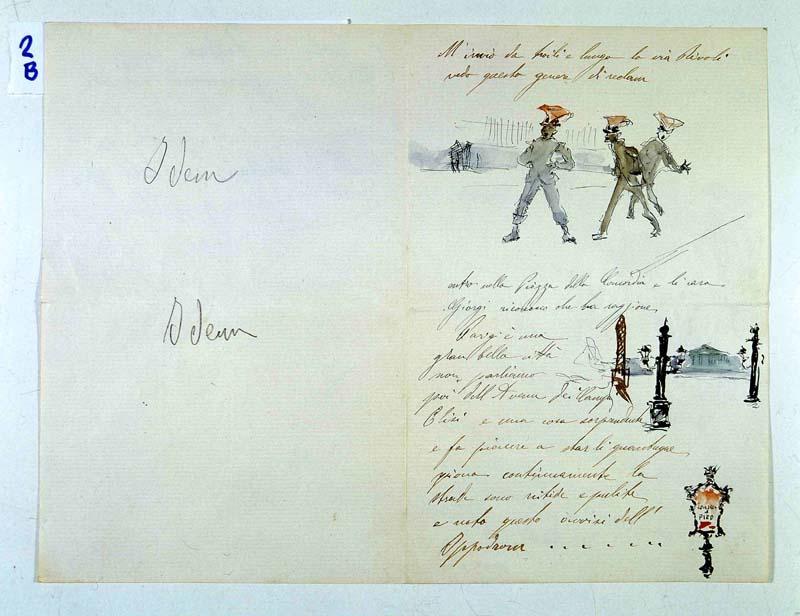 2
B
Idem
Idem
M'invio da tutti e lungo la via Rivoli
vedo questo genere di reclam
entro nella Piazza della Concordia e li caro
Giorgi riconosco che hai raggione
Parigi è una
gran bella città
non parliamo
poi dell'Avenu dei Campi
Elisi e una cosa sorprendente
e fa piacere a star li quantunque
piova continuamente le
strade sono nitide e pulite
e noto questo avvisi dell'
Ippodrom